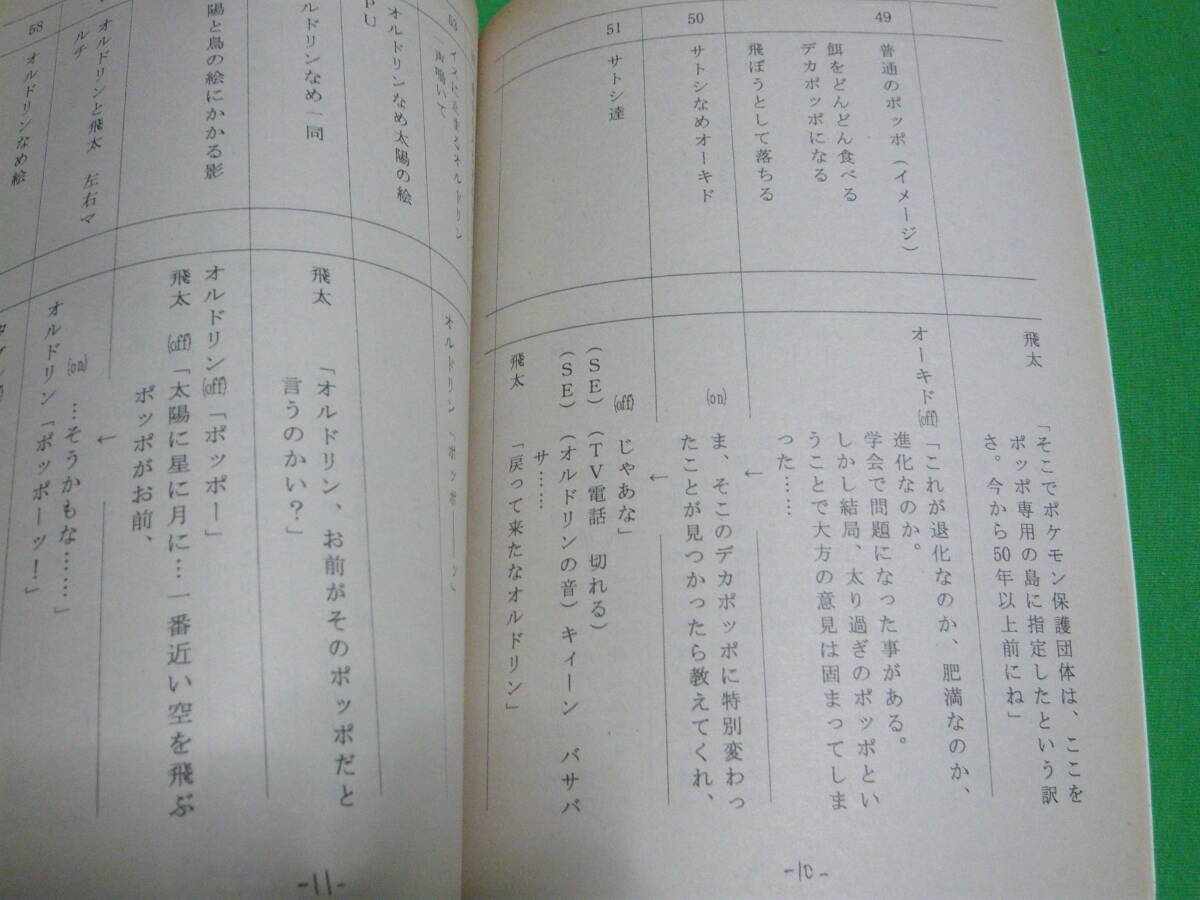 飛太
「そこでポケモン保護団体は、ここを
ポッポ専用の島に指定したという訳
さ。今から50年以上前にね」
49
普通のポッポ（イメージ）
餌をどんどん食べる
デカポッポになる
飛ぼうとして落ちる
オーキド(off)「これが退化なのか、肥満なのか、
進化なのか。
学会で問題になった事がある。
しかし結局、太り過ぎのポッポとい
うことで大方の意見は固まってしま
った……
50
サトシなめオーキド
←
(on)
ま、そこのデカポッポに特別変わっ
たことが見つかったら教えてくれ、
51
サトシ達
←
(off)
じゃあな」
(SE)（TV電話 切れる）
(SE)（オルドリンの音）キィーン バサバ
サ……
飛太
「戻って来たなオルドリン」
-10-
オルドリン
声鳴いて
オルドリン「ポッポ――ッ」
オルドリンなめ太陽の絵
PU
飛太
「オルドリン、お前がそのポッポだと
言うのかい？」
ルドリンなめ一同
オルドリン(off)「ポッポー」
飛太(off)「太陽に星に月に…一番近い空を飛ぶ
ポッポがお前、
陽と鳥の絵にかかる影
オルドリンと飛太 左右マ
ルチ
←
(on)
…そうかもな……」
オルドリン「ポッポーッ！」
58
オルドリンなめ絵
-11-